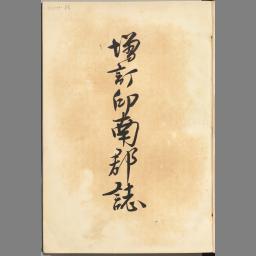 增訂印南郡誌